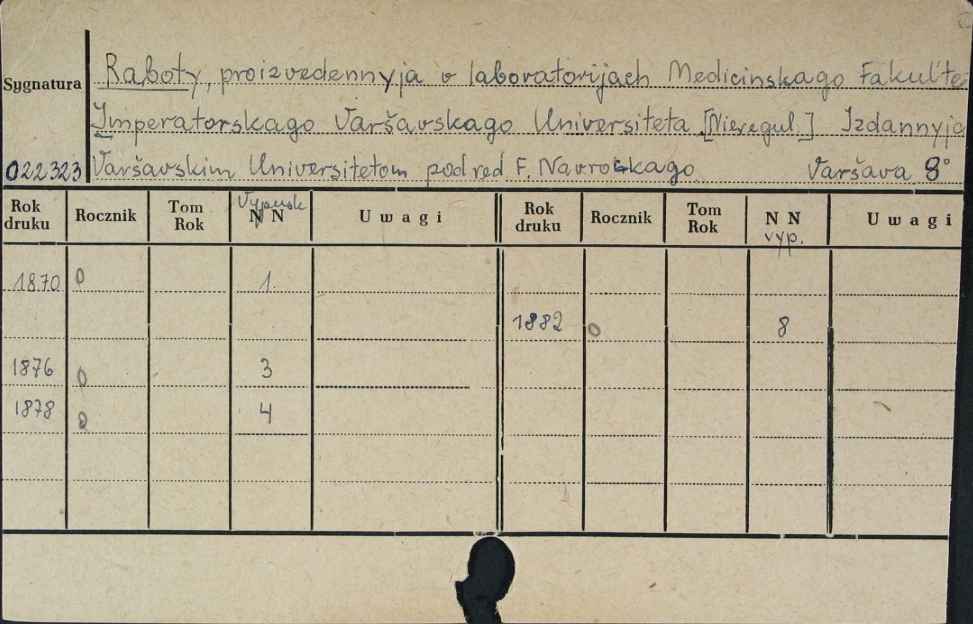 Raboty, proizvedennyja v laboratorijach Medicinskago Fakul'te
Sygnatura
Imperatorskago Varšavskago Universiteta [Nieregul.] Izdannyja
022323 Varšavskim Universitetom pod red F. Navrockago Varšava 8°
Rok druku Rocznik Tom Rok Vypusk N N Uwagi Rok druku Rocznik Tom Rok N N vyp. Uwagi
1870 0 1.
1882 0 8
1876 0 3
1878 0 4